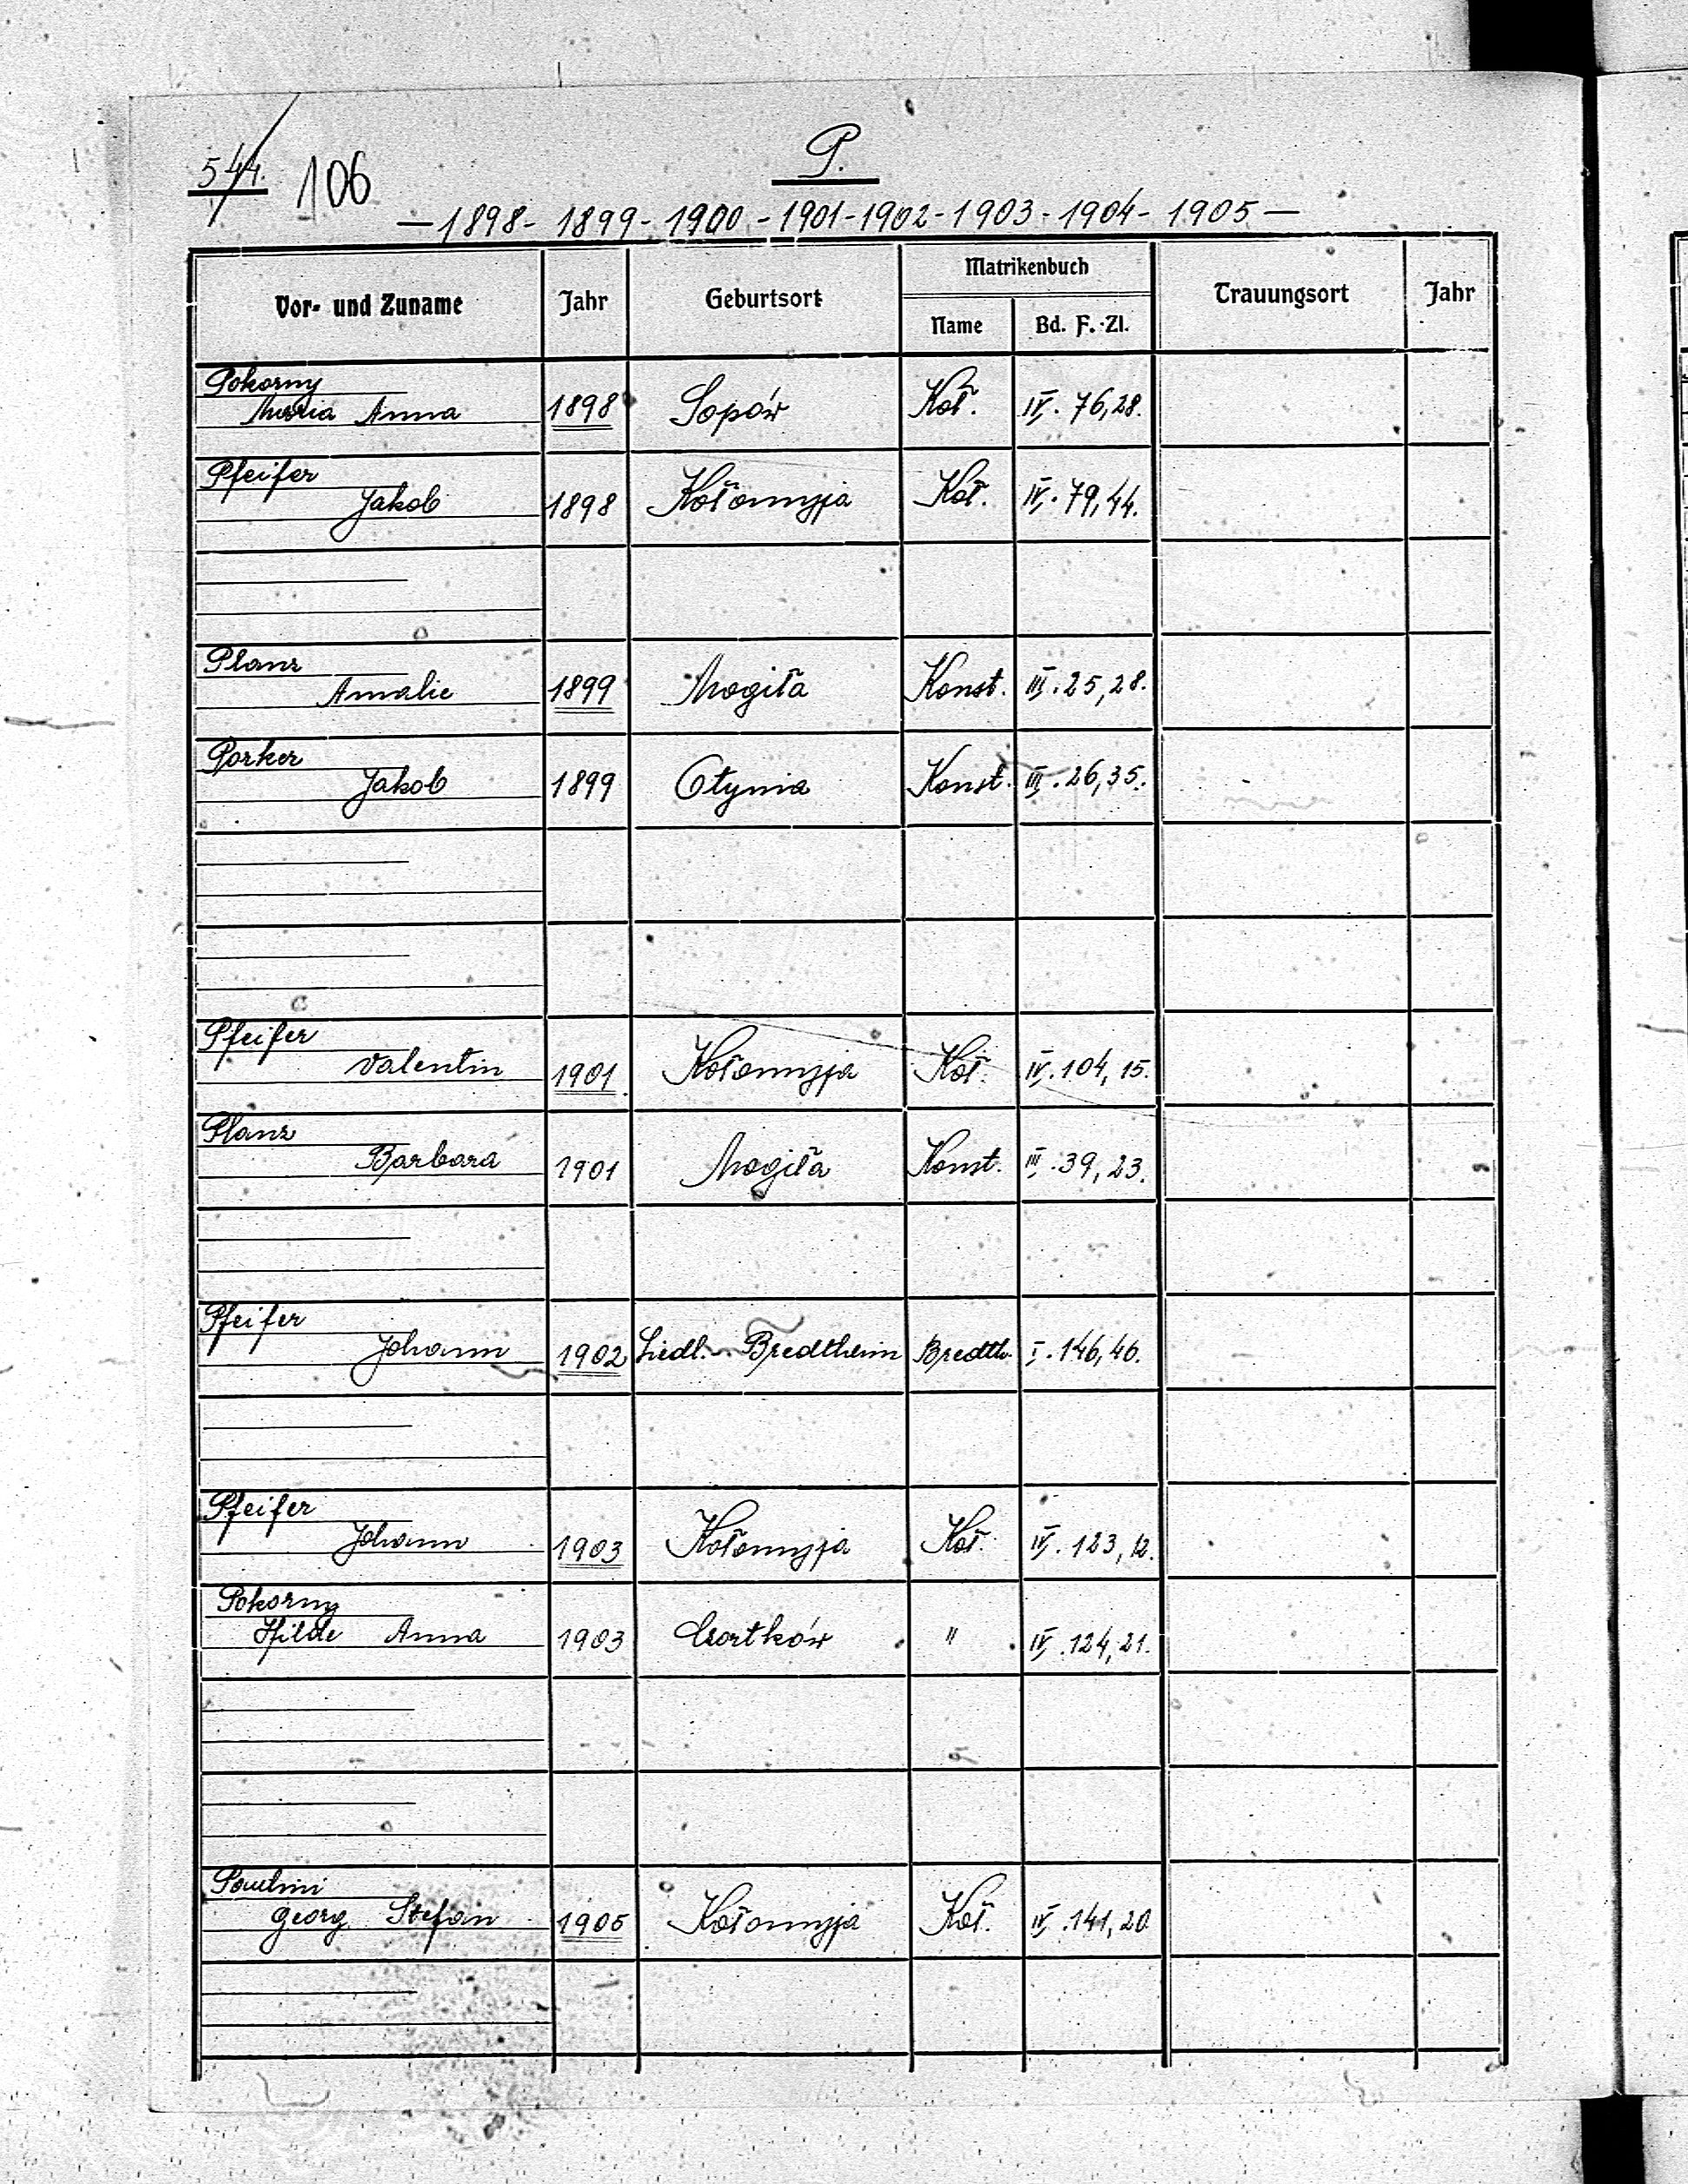 544. 106
P.
— 1898 - 1899 - 1900 - 1901 - 1902 - 1903 - 1904 - 1905 —
Vor- und Zuname Jahr Geburtsort Matrikenbuch Trauungsort Jahr
Name Bd. F.-Zl.
Pokorny
Maria Anna 1898 Sopów Koł. IV. 76,28.
Pfeifer
Jakob 1898 Kołomyja Koł. IV. 79,44.
Planz
Amalie 1899 Mogiła Konst. III. 25,28.
Porker
Jakob 1899 Otynia Konst. III. 26,35.
Pfeifer
Valentin 1901 Kołomyja Koł. IV. 104, 15.
Planz
Barbara 1901 Mogiła Konst. III. 39, 23.
Pfeifer
Johann 1902 Siedl. Bredtheim Bredth. I. 146, 46.
Pfeifer
Johann 1903 Kołomyja Koł. IV. 123, 12.
Pokorny
Hilde Anna 1903 Czortków " IV. 124, 21.
Paulini
Georg Stefan 1905 Kołomyja Koł. IV. 141, 20